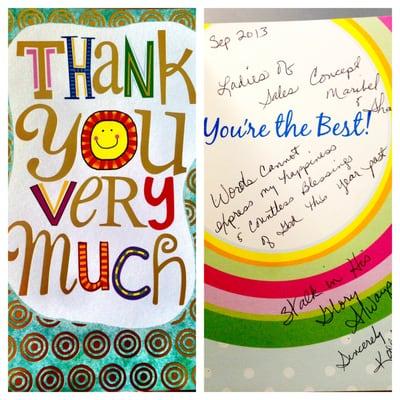 THANK
YOU
VERY
much
Sep 2013
Ladies of
Sales Concept
Maribel
& Sha
You're the Best!
Words cannot
express my happiness
& countless Blessings
of God this year past
in His
Glory
Always
Sincerely